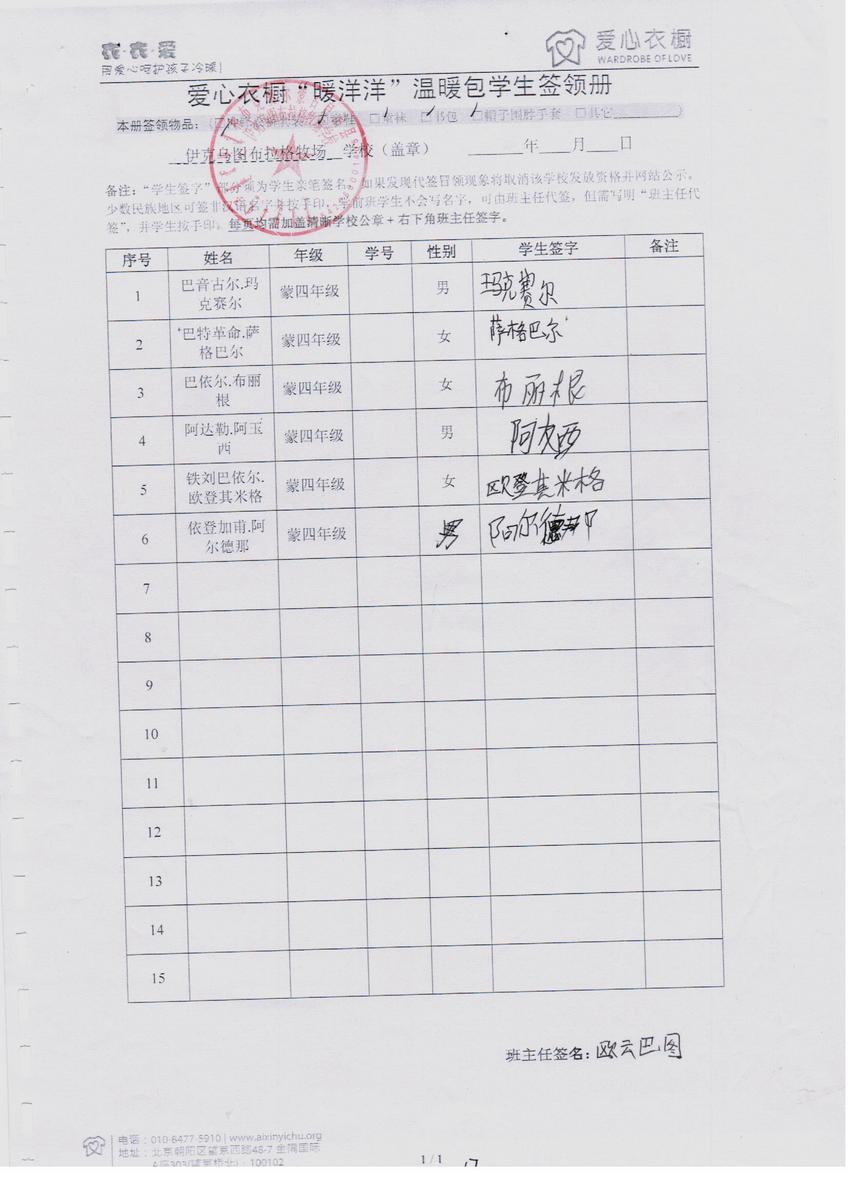 爱·衣·衣
用爱心呵护孩子冷暖!
爱心衣橱
WARDROBE OF LOVE
爱心衣橱“暖洋洋”温暖包学生签领册
本册签领物品: 书包 □帽子围脖手套 □其它
伊克乌图布拉格牧场 学校(盖章) 年 月 日
备注:“学生签字”部分须为学生亲笔签名。如果发现代签冒领现象将取消该学校发放资格并网站公示。
少数民族地区可签非汉语名字并按手印,学前班学生不会写名字,可由班主任代签,但需写明“班主任代
签”,并学生按手印。每页均需加盖清晰学校公章+右下角班主任签字。
序号 姓名 年级 学号 性别 学生签字 备注
1 巴音古尔.玛克赛尔 蒙四年级 男 玛克赛尔
2 巴特革命.萨格巴尔 蒙四年级 女 萨格巴尔
3 巴依尔.布丽根 蒙四年级 女 布丽根
4 阿达勒.阿玉西 蒙四年级 男
5 铁刘巴依尔.欧登其米格 蒙四年级 女 欧登其米格
6 依登加甫.阿尔德那 蒙四年级 男 阿尔德那
7
8
9
10
11
12
13
14
15
班主任签名: 欧云巴图
电话:010-8477-5910 | www.aixinyichu.org
地址:北京朝阳区望京西路48-7 金隅国际
A座303(望京桥北):100102
1 / 1